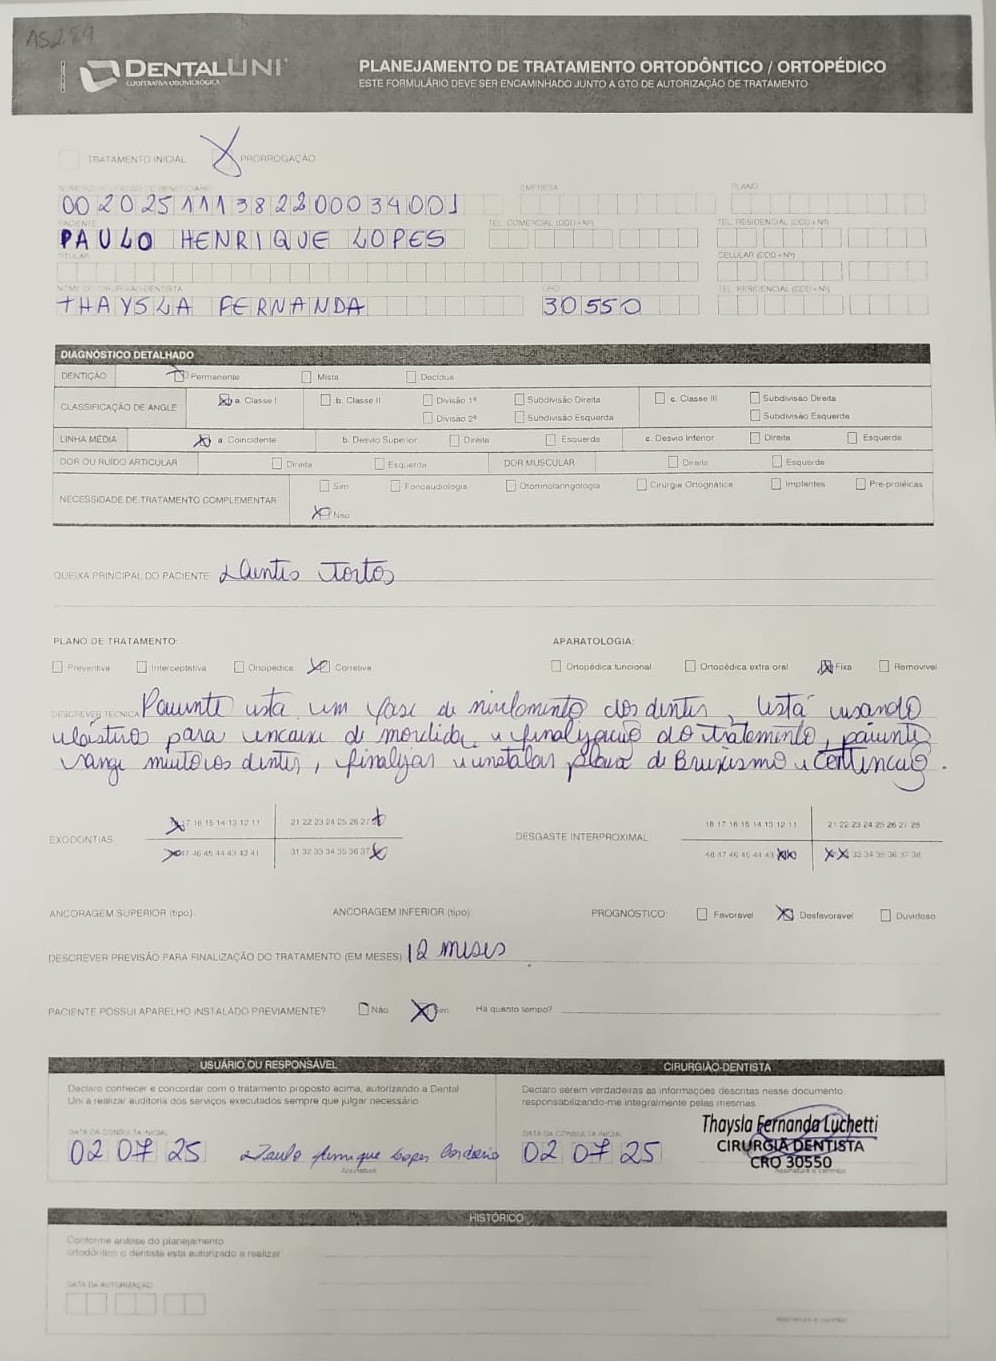 AS289
DENTALUNI
COOPERATIVA ODONTOLÓGICA
PLANEJAMENTO DE TRATAMENTO ORTODÔNTICO / ORTOPÉDICO
ESTE FORMULÁRIO DEVE SER ENCAMINHADO JUNTO À GTO DE AUTORIZAÇÃO DE TRATAMENTO
TRATAMENTO INICIAL PRORROGAÇÃO
EMPRESA PLANO
002025111382200034001
PACIENTE TEL. COMERCIAL (DDD + Nº) TEL. RESIDENCIAL (DDD + Nº)
PAULO HENRIQUE LOPES
TITULAR CELULAR (DDD + Nº)
NOME DO CIRURGIÃO-DENTISTA CRO TEL. RESIDENCIAL (DDD + Nº)
THAYSLA FERNANDA 30550
DIAGNÓSTICO DETALHADO
DENTIÇÃO Permanente Mista Decídua
CLASSIFICAÇÃO DE ANGLE a. Classe I b. Classe II Divisão 1ª Subdivisão Direita c. Classe III Subdivisão Direita
Divisão 2ª Subdivisão Esquerda Subdivisão Esquerda
LINHA MÉDIA a. Coincidente b. Desvio Superior Direita Esquerda c. Desvio Inferior Direita Esquerda
DOR OU RUÍDO ARTICULAR Direita Esquerda DOR MUSCULAR Direita Esquerda
NECESSIDADE DE TRATAMENTO COMPLEMENTAR Sim Fonoaudiologia Otorrinolaringologia Cirurgia Ortognática Implantes Pré-protéicas
Não
QUEIXA PRINCIPAL DO PACIENTE Dentes Tortos
PLANO DE TRATAMENTO: APARATOLOGIA:
Preventiva Interceptativa Ortopédica Corretiva Ortopédica funcional Ortopédica extra oral Fixa Removível
DESCREVER TÉCNICA Paciente esta em fase de nivelamento dos dentes, Está usando
elásticos para encaixe de mordida e finalização do tratamento, paciente
range muito os dentes, finalizar e instalar placa de Bruxismo e Contenção.
17 16 15 14 13 12 11 21 22 23 24 25 26 27 18 17 16 15 14 13 12 11 21 22 23 24 25 26 27 28
EXODONTIAS DESGASTE INTERPROXIMAL
47 46 45 44 43 42 41 31 32 33 34 35 36 37 48 47 46 45 44 43 33 34 35 36 37 38
ANCORAGEM SUPERIOR (tipo): ANCORAGEM INFERIOR (tipo): PROGNÓSTICO: Favorável Desfavorável Duvidoso
DESCREVER PREVISÃO PARA FINALIZAÇÃO DO TRATAMENTO (EM MESES) 12 meses
PACIENTE POSSUI APARELHO INSTALADO PREVIAMENTE? Não Sim Há quanto tempo?
USUÁRIO OU RESPONSÁVEL CIRURGIÃO-DENTISTA
Declaro conhecer e concordar com o tratamento proposto acima, autorizando a Dental Declaro serem verdadeiras as informações descritas nesse documento,
Uni a realizar auditoria dos serviços executados sempre que julgar necessário. responsabilizando-me integralmente pelas mesmas.
DATA DA CONSULTA INICIAL DATA DA CONSULTA INICIAL
Thaysla Fernanda Luchetti
02 07 25 Paulo Henrique Lopes 02 07 25 CIRURGIÃ DENTISTA
Assinatura CRO 30550
Assinatura e carimbo
HISTÓRICO
Conforme análise do planejamento
ortodôntico o dentista está autorizado a realizar
DATA DA AUTORIZAÇÃO
Assinatura e carimbo